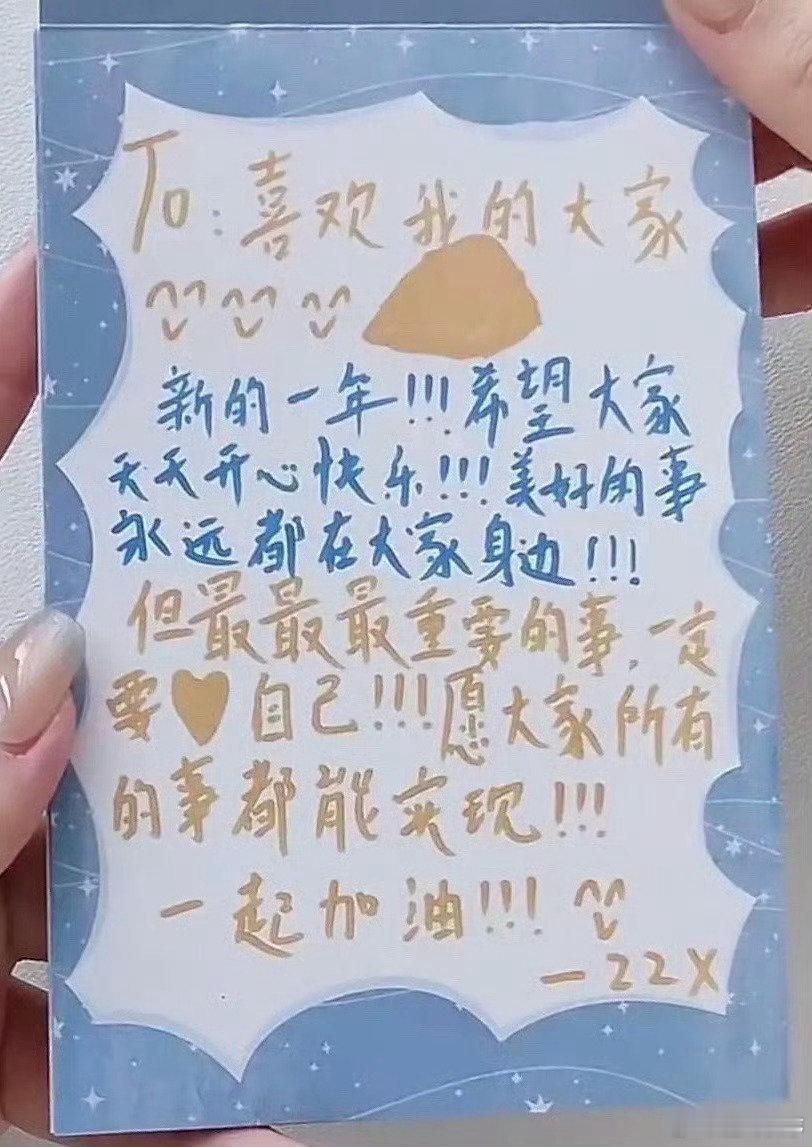 To:喜欢我的大家
新的一年!!!希望大家
天天开心快乐!!!美好的事
永远都在大家身边!!!
但最最最重要的事,一定
要♥自己!!!愿大家所有
的事都能实现!!!
一起加油!!!
—22X